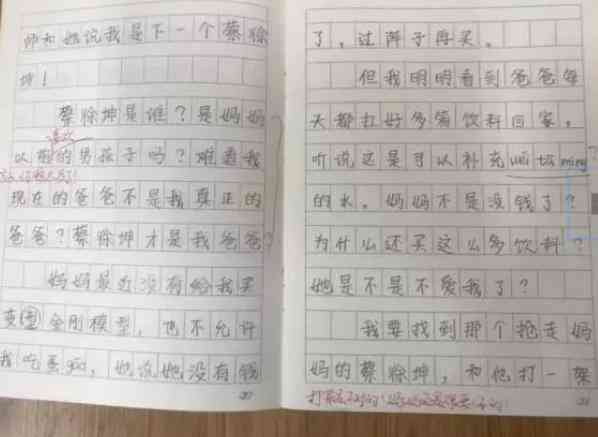 师和她说我是下一个蔡徐
坤！
蔡徐坤是谁？是妈妈
喜欢
以前的男孩子吗？难道我
现在的爸爸不是我真正的
爸爸？蔡徐坤才是我爸爸？
妈妈最近没有给我买
变型金刚模型，也不允许
我吃蛋gāo，她说她没有钱
了，过阵子再买。
但我明明看到爸爸每
天都扛好多箱饮料回家。
听说这是可以补充wéi tā mìng
的水。妈妈不是没钱了？
为什么还买这么多饮料？
她是不是不爱我了？
我要找到那个抢走妈
妈的蔡徐坤，和他打一架
打架是不对的！